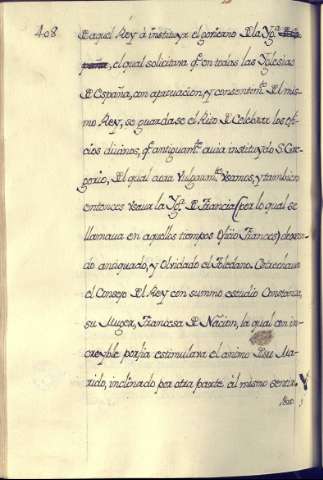 408
de aquel Rey á instituyr el gouierno de la Ygª
, el qual solicitaua qᵉ en todas las Yglesias
de España, con aprouacion, y consentimtᵒ del mis-
mo Rey, se guardase el Rito de Celebrar los ofi-
cios diuinos, qᵉ antiguamtᵉ auia instituydo S. Gre-
gorio, del qual aora Vulgarmtᵉ Vsamos, y tambien
entonces Vsaua la Ygª de Francia (por lo qual se
llamaua en aquellos tiempos oficio Frances) dexan-
do antiguado, y Olvidado el Toledano. Estrechaua
el Consejo del Rey con summo estudio Constancia,
su Muger, Francesa de Nacion, la qual con in-
creyble porfia estimulaua el animo de su Ma-
rido, inclinado por otra parte al mismo sentir. Y